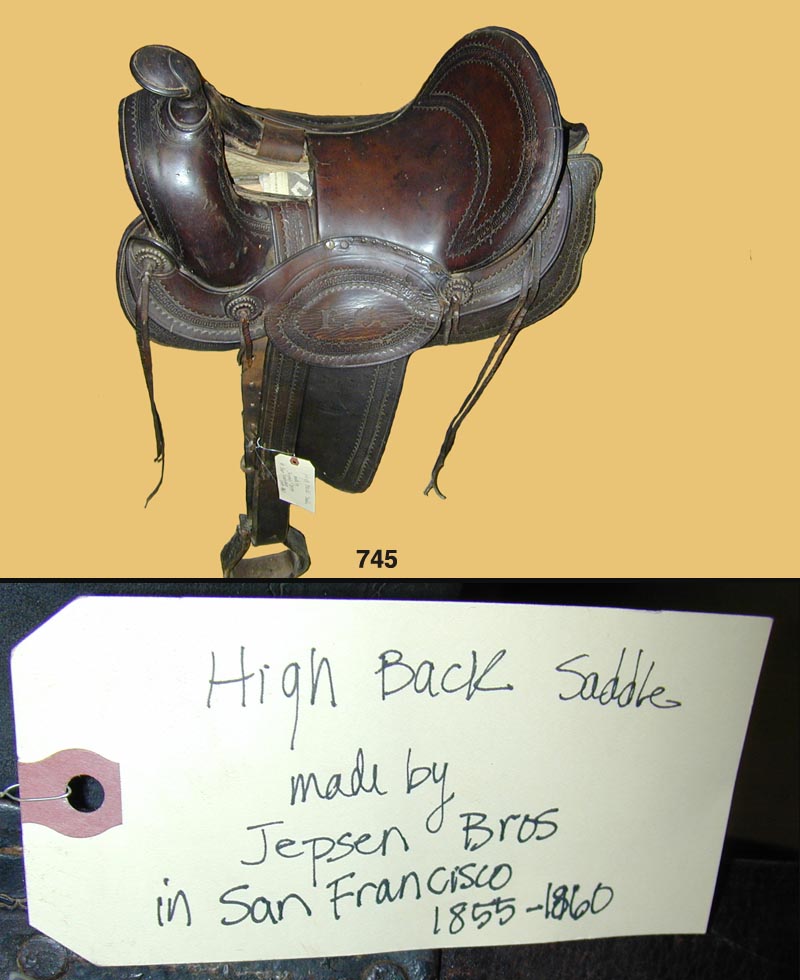 745
High Back Saddle
made by
Jepsen Bros
in San Francisco
1855-1860